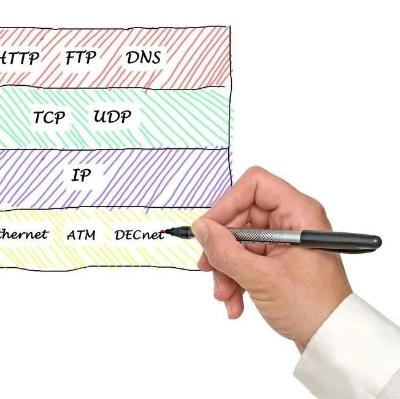 HTTP FTP DNS
TCP UDP
IP
thernet ATM DECnet